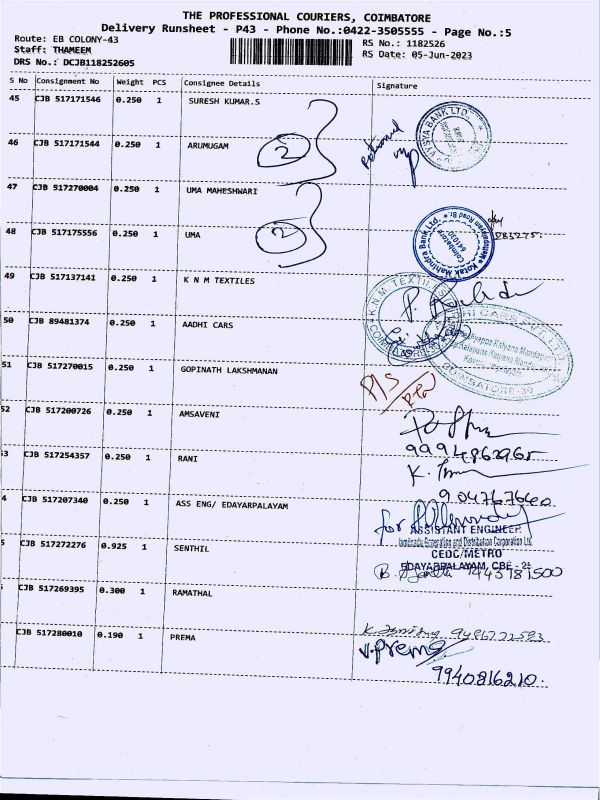 THE PROFESSIONAL COURIERS, COIMBATORE
Delivery Runsheet - P43 - Phone No.:0422-3505555 - Page No.:5
Route: EB COLONY-43
RS No.: 1182526
Staff: THAMEEM
RS Date: 05-Jun-2023
DRS No.: DCJB118252605
S No Consignment No Weight PCS Consignee Details Signature
45 CJB 517171546 0.250 1 SURESH KUMAR.S
VYSYA BANK LTD.
46 CJB 517171544 0.250 1 ARUMUGAM
2
47 CJB 517270004 0.250 1 UMA MAHESHWARI
48 CJB 517175556 0.250 1 UMA
2
Kotak Mahindra Bank Ltd.
Coimbatore
49 CJB 517137141 0.250 1 K N M TEXTILES
K.N.M TEXTILES
COIMBATORE
50 CJB 89481374 0.250 1 AADHI CARS
COIMBATORE-30
51 CJB 517270015 0.250 1 GOPINATH LAKSHMANAN
P/S
52 CJB 517200726 0.250 1 AMSAVENI
3 CJB 517254357 0.250 1 RANI
4 CJB 517207340 0.250 1 ASS ENG/ EDAYARPALAYAM
for
ASSISTANT ENGINEER
Tamilnadu Generation and Distribution Corporation Ltd.
CEDC/METRO
EDAYARPALAYAM, CBE - 25
5 CJB 517272276 0.925 1 SENTHIL
CJB 517269395 0.300 1 RAMATHAL
CJB 517280010 0.190 1 PREMA
V.Prema
9940816210.